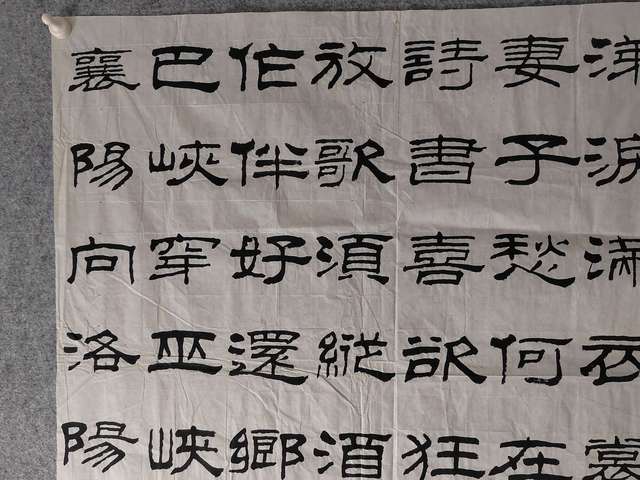 涕淚滿衣裳
妻子愁何在
詩書喜欲狂
放歌須縱酒
作伴好還鄉
巴峽穿巫峽
襄陽向洛陽